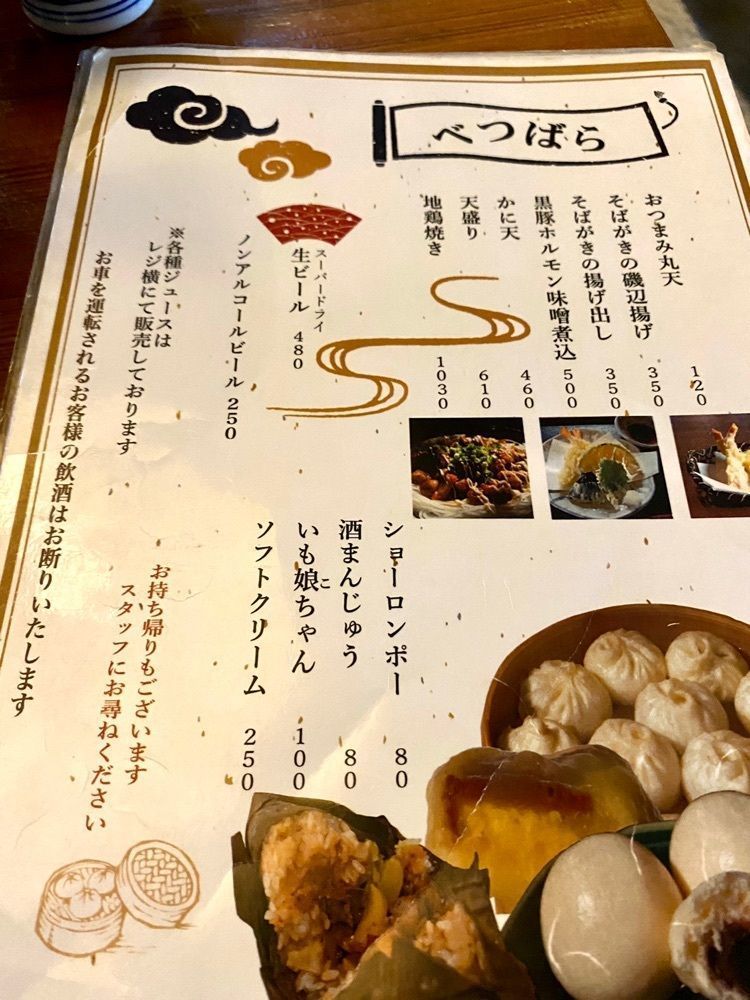 べつばら
おつまみ丸天 120
そばがきの磯辺揚げ 350
そばがきの揚げ出し 350
黒豚ホルモン味噌煮込 500
かに天 460
天盛り 610
地鶏焼き 1030
スーパードライ
生ビール 480
ノンアルコールビール 250
※各種ジュースは
レジ横にて販売しております
お車を運転されるお客様の飲酒はお断りいたします
ショーロンポー 80
酒まんじゅう 80
いも娘ちゃん 100
こ
ソフトクリーム 250
お持ち帰りもございます
スタッフにお尋ねください